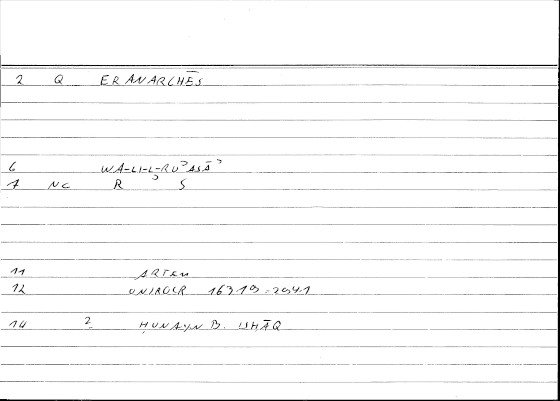 2 Q ERANARCHĒS
6 WA-LI-L-RUʾASĀʾ
7 NC R ʾ S
11 ARTEM
12 ONIROCR 16319=2941
14 2 ḤUNAYN B. ISḤĀQ